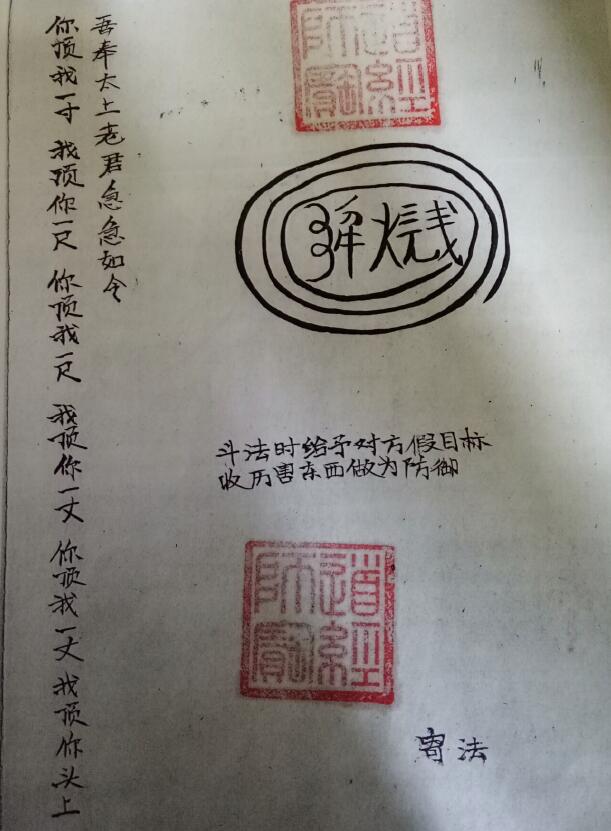 你顶我一寸 我顶你一尺 你顶我一尺 我顶你一丈 你顶我一丈 我顶你头上
吾奉太上老君急急如令
道經師寶
斗法时给予对方假目标
收厉害东西做为防御
道經師寶
寄法